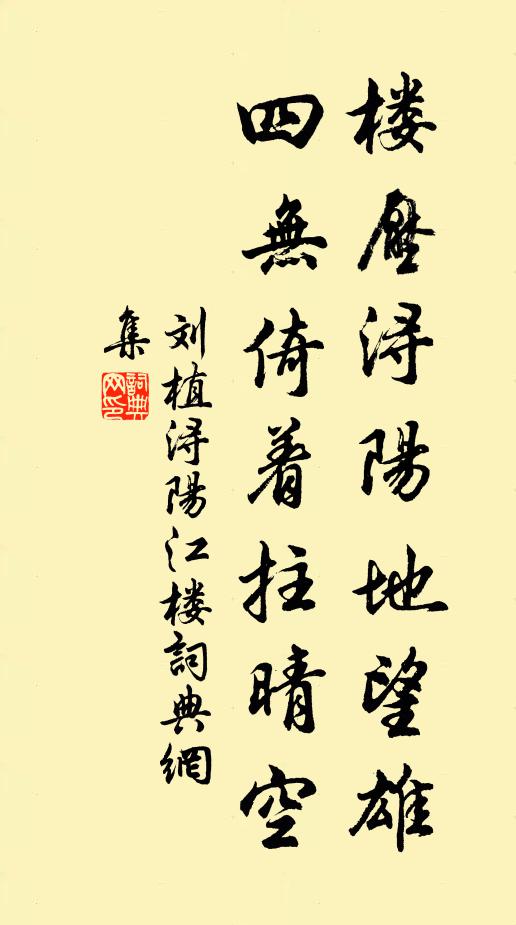 楼壓浔陽地望雄
四無倚着拄晴空
刘植浔陽江楼詞典網
集
詞典网印